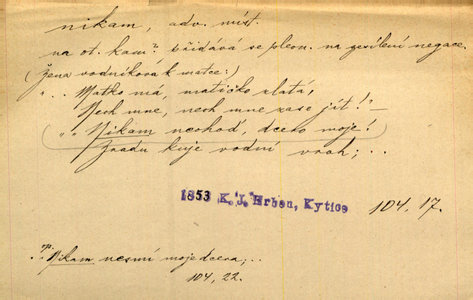 nikam, adv. míst.
na ot. kam? přidává se pleon. na zesílení negace.
(Žena vodníkova k matce:)
„.. Matko má, matičko zlatá,
Nech mne, nech mne zase jít!“ –
„Nikam nechoď, dcero moje!
Zradu kuje vodní vrah; ..
1853 K. J. Erben, Kytice 104, 17.
Nikam nesmí moje dcera; ..
104, 22.